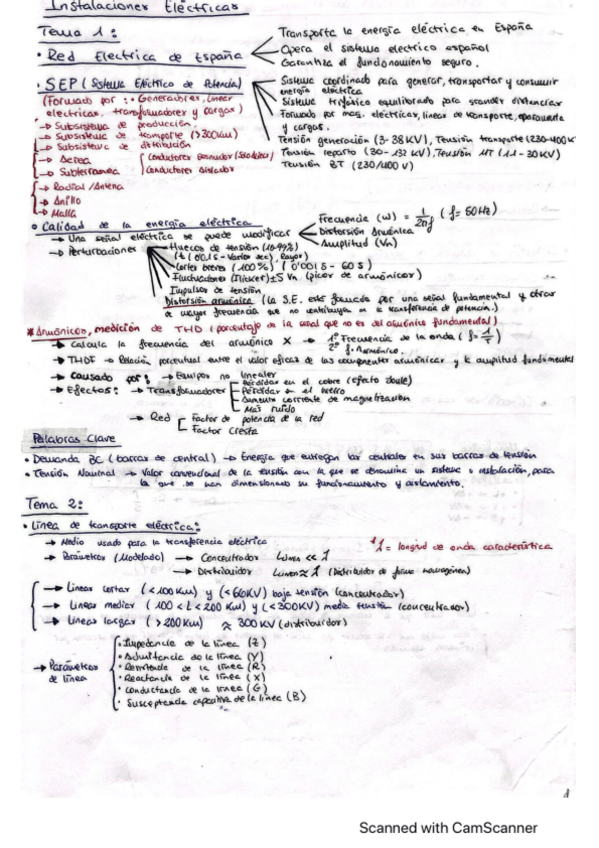 Instalaciones Eléctricas
Tema 1:
• Red Electrica de España
Transporta la energía eléctrica en España
Opera el sistema electrico español
Garantiza el funcionamiento seguro.
• SEP (Sistema Eléctrico de Potencia)
(Formado por: • Generadores, linear
electricas, transformadores y cargas)
→ Subsistema de producción.
→ Subsistema de transporte (>300Km)
→ Subsistema de distribución
→ Aerea
→ Subterranea
Conductores
Conductores aislador
→ Radial / Antena
→ Anillo
→ Malla
Sistema coordinado para generar, transportar y consumir
energía eléctrica
Sistema trifásico equilibrado para grander distanciar
Formado por maq. eléctricas, linear de transporte, aparamenta
y cargas.
Tensión generación (3-38KV), Tensión transporte (230-400K
Tensión reparto (30-132 KV), Tensión MT (11-30KV)
Tensión BT (230/400 V)
• Calidad de la energía eléctrica
→ Una señal eléctrica se puede modificar
Frecuencia (w) = 1/2πf (f=50Hz)
Distorsión Armónica
Amplitud (Vn)
→ Perturbaciones
Huecos de tensión (10-99%)
(t (0'01s - Varios sec), Rayos)
Cortes breves (100%) (0'001s - 60s)
Fluctuaciones (Flicker) ±5 Vn (picor de armónicar)
Impulsos de tensión
Distorsión armónica (la S.E. está formada por una señal fundamental y otras
de mayor frecuencia que no contribuyen en la transferencia de potencia.)
* Armónicos, medición de THD (porcentaje de la señal que no es del armónico fundamental)
→ Calcula la frecuencia del armónico X → 1º Frecuencia de la onda (f = 1/T)
2º f · Narmónico.
→ THDF → Relación porcentual entre el valor eficaz de las componenter armónicar y la amplitud fundamental
→ Causado por: → Equipos no linealer
→ Efectos: → Transformadores
Pérdidar en el cobre (efecto Joule)
Pérdidar en el hierro
Aumenta corriente de magnetización
Más ruido
→ Red
Factor de potencia de la red
Factor Cresta
Palabras Clave
• Demanda BC (barras de central) → Energía que entregan las centrales en sus barras de tensión
• Tensión Nominal → Valor convencional de la tensión con la que se denomina un sistema o instalación, para
la que se han dimensionado su funcionamiento y aislamiento.
Tema 2:
• Línea de transporte eléctrica:
→ Medio usado para la transferencia eléctrica
*λ = longitud de onda característica
→ Parámetros (Modelado) → Concentrador Llínea << λ
→ Distribuidor Llínea ≈ λ (Distribuidor de forma homogénea)
→ Lineas cortar (<100Km) y (<66KV) baja tensión (concentrador)
→ Lineas mediar (100 < L < 200 Km) y (<300KV) media tensión (concentrador)
→ Líneas largar (>200Km) ≈ 300KV (distribuidor)
→ Parámetros
de línea
• Impedancia de la línea (Z)
• Admitancia de la línea (Y)
• Resistencia de la línea (R)
• Reactancia de la línea (X)
• Conductancia de la línea (G)
• Susceptancia capacitiva de la línea (B)
1
Scanned with CamScanner